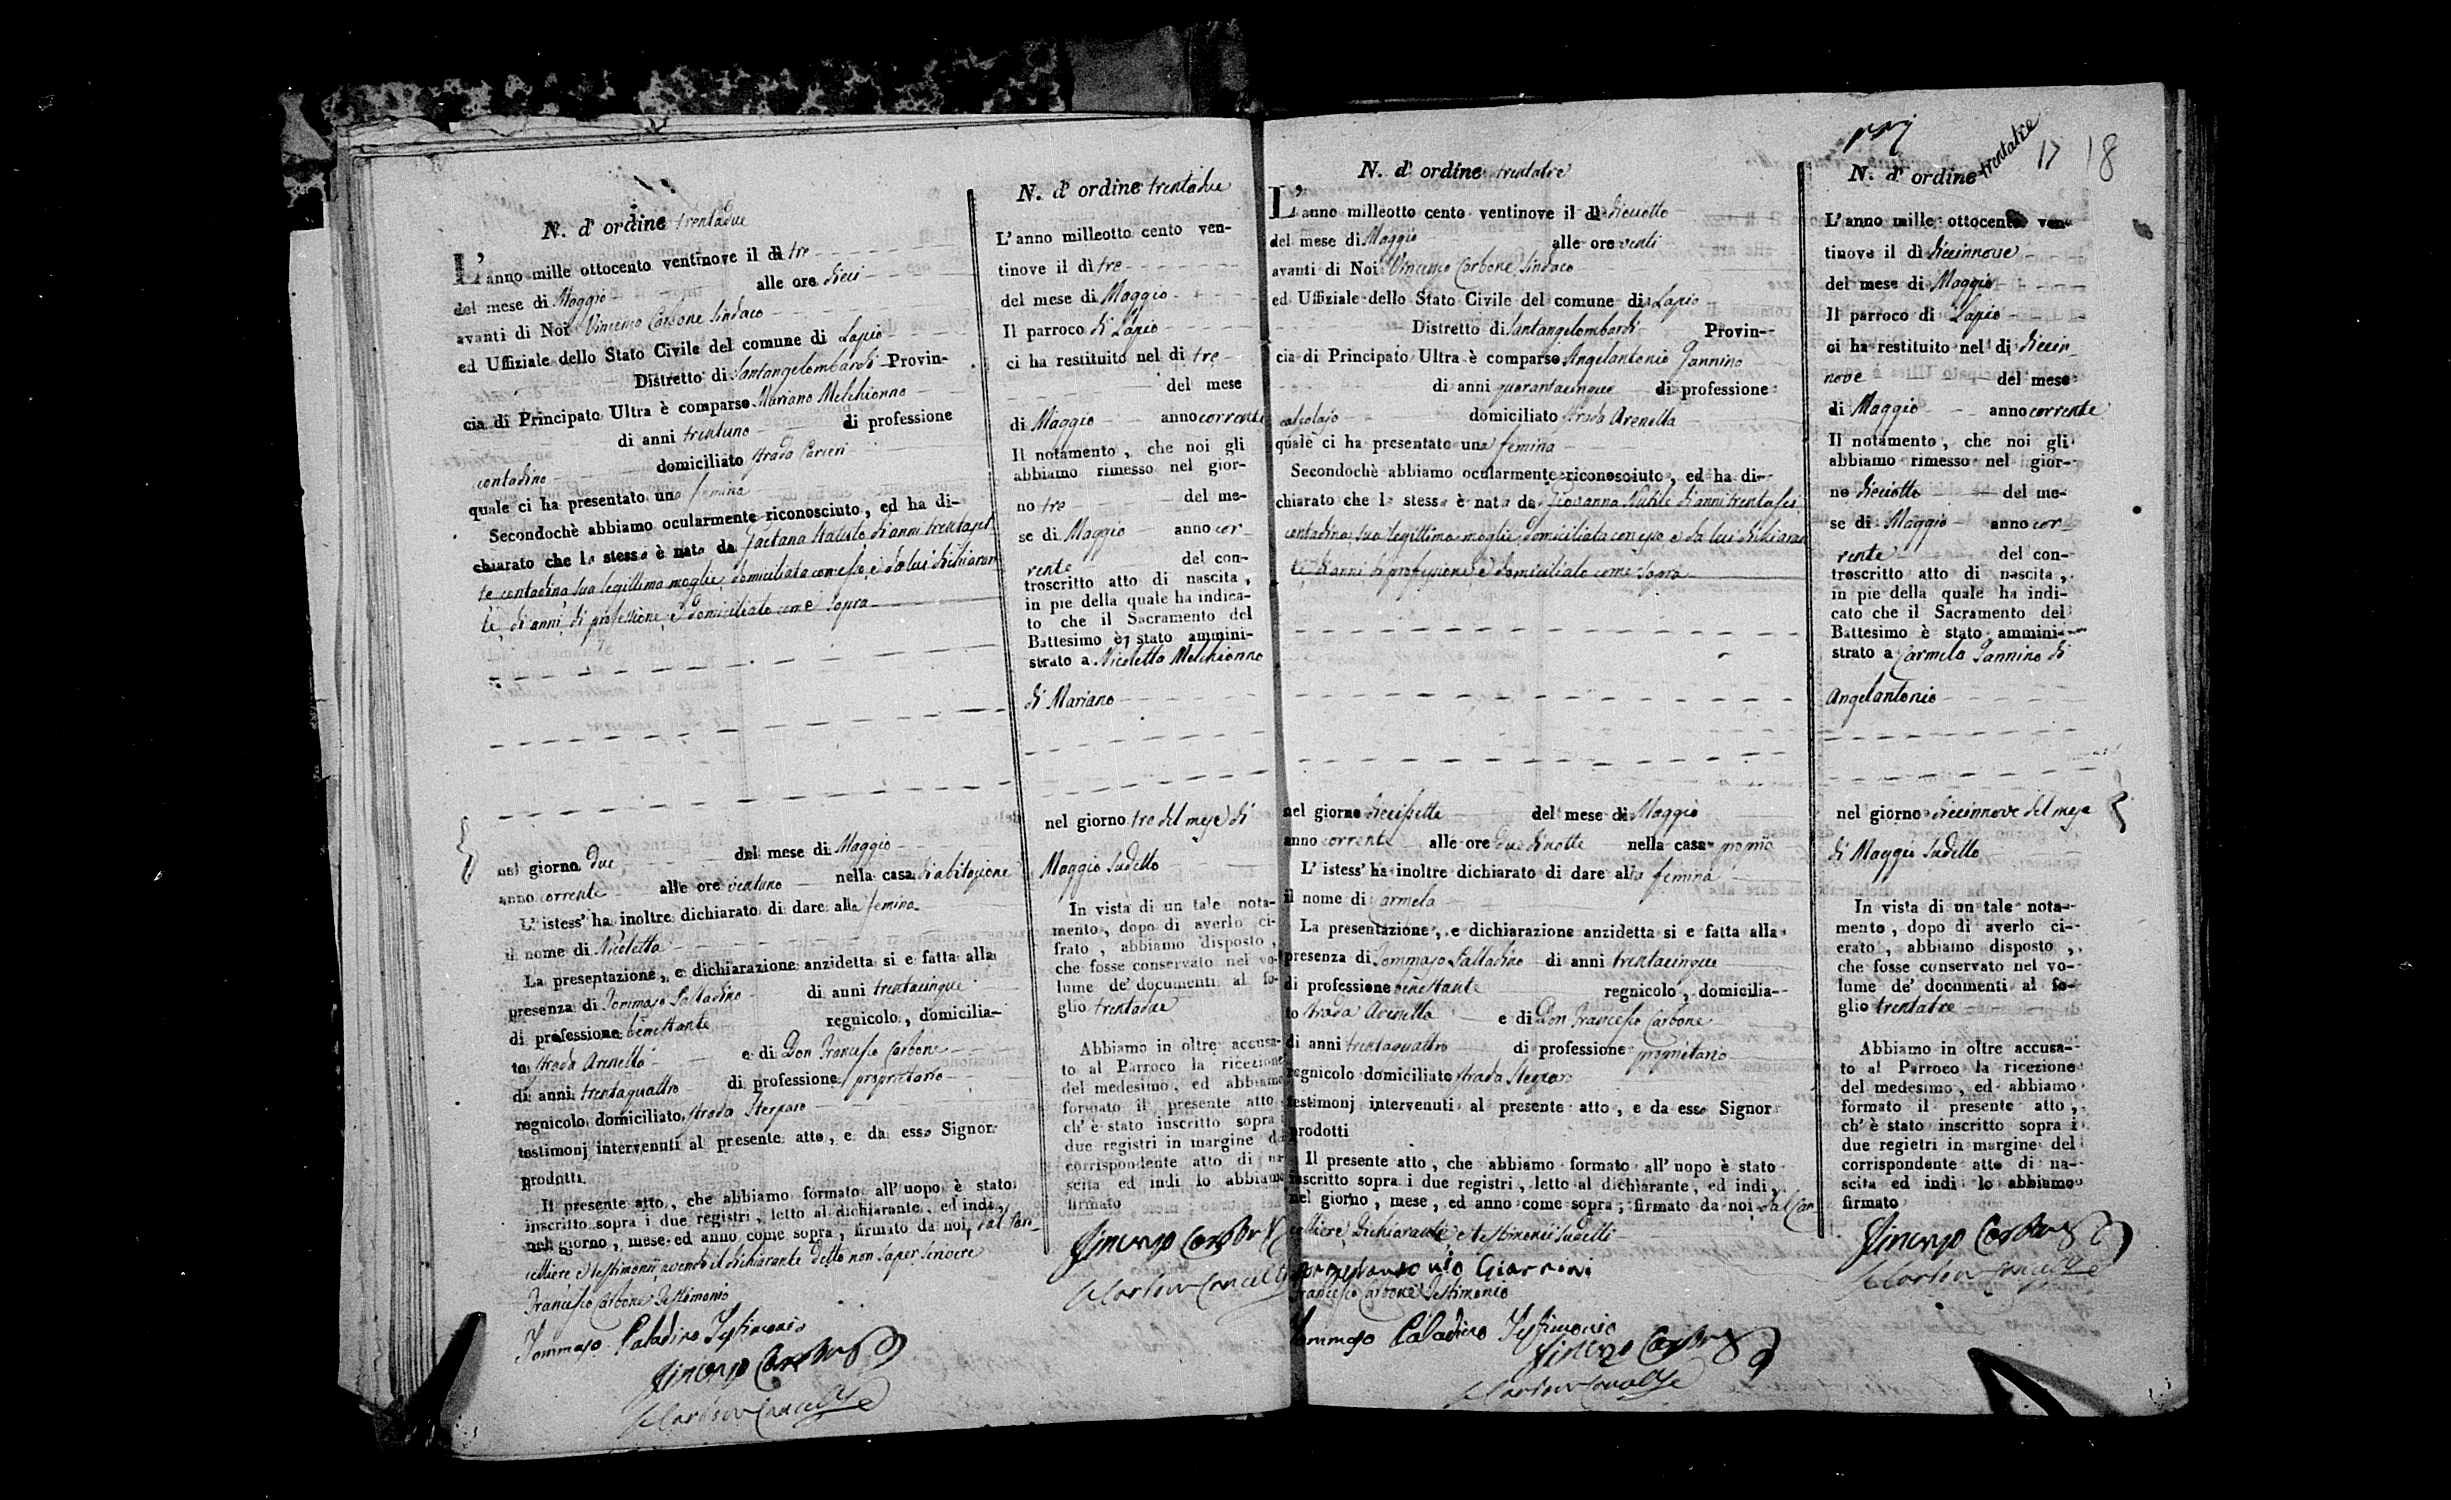 N. d'ordine trentadue
L'anno mille ottocento ventinove il dì tre
del mese di Maggio alle ore dieci
avanti di Noi Vincenzo Carbone Sindaco
ed Uffiziale dello Stato Civile del comune di Lapio
Distretto di Santangelombardi Provin-
cia di Principato Ultra è comparso Mariano Melchionno
di anni trentuno di professione
contadino domiciliato strada Carceri
quale ci ha presentato una femina
Secondochè abbiamo ocularmente riconosciuto, ed ha di-
chiarato che la stessa è nata da Gaetana di anni trentaset
te contadina sua legittima moglie domiciliata con esso, e da lui dichiaran
te, di anni, di professione, e domiciliato come sopra
nel giorno due del mese di Maggio
anno corrente alle ore ventuno nella casa di abitazione
L'istess' ha inoltre dichiarato di dare alla femina
il nome di Nicoletta
La presentazione, e dichiarazione anzidetta si e fatta alla
presenza di Tommaso Palladino di anni trentacinque
di professione benestante regnicolo, domicilia-
to strada Arenella e di Don Francesco Carbone
di anni trentaquattro di professione proprietario
regnicolo domiciliato strada Sterparo
testimonj intervenuti al presente atto, e da esso Signor
prodotti.
Il presente atto, che abbiamo formato all'uopo è stato
inscritto sopra i due registri, letto al dichiarante, ed indi,
nel giorno, mese ed anno come sopra, firmato da noi, dal Can-
celliere e testimonii, avendo il dichiarante detto non saper scrivere
Francesco Carbone Testimonio
Tommaso Paladino Testimonio
Vincenzo Carbone
N. d'ordine trentadue
L'anno milleotto cento ven-
tinove il dì tre
del mese di Maggio
Il parroco di Lapio
ci ha restituito nel dì tre
del mese
di Maggio anno corrente
Il notamento, che noi gli
abbiamo rimesso nel gior-
no tre del me-
se di Maggio anno cor-
rente del con-
troscritto atto di nascita,
in pie della quale ha indica-
to che il Sacramento del
Battesimo è stato ammini-
strato a Nicoletta Melchionno
di Mariano
nel giorno tre del mese di
Maggio sudetto
In vista di un tale nota-
mento, dopo di averlo ci-
frato, abbiamo disposto,
che fosse conservato nel vo-
lume de' documenti al fo-
glio trentadue
Abbiamo in oltre accusa-
to al Parroco la ricezione
del medesimo, ed abbiamo
formato il presente atto
ch' è stato inscritto sopra
due registri in margine del
corrispondente atto di na-
scita ed indi lo abbiamo
firmato
Vincenzo Carbone
N. d'ordine trentatre
L'anno milleotto cento ventinove il dì dieciotto
del mese di Maggio alle ore venti
avanti di Noi Vincenzo Carbone Sindaco
ed Uffiziale dello Stato Civile del comune di Lapio
Distretto di Santangelombardi Provin-
cia di Principato Ultra è comparso Angelantonio Jannino
di anni quarantacinque di professione
calzolajo domiciliato strada Arenella
quale ci ha presentato una femina
Secondochè abbiamo ocularmente riconosciuto, ed ha di-
chiarato che la stessa è nata da Giovanna Nutile di anni trentasei
contadina sua legittima moglie domiciliata con esso e da lui dichiaran
te di anni di professione, e domiciliato come sopra
nel giorno diecisette del mese di Maggio
anno corrente alle ore due di notte nella casa propria
L'istess' ha inoltre dichiarato di dare alla femina
il nome di Carmela
La presentazione, e dichiarazione anzidetta si e fatta alla
presenza di Tommaso Palladino di anni trentacinque
di professione benestante regnicolo, domicilia-
to strada Arenella e di Don Francesco Carbone
di anni trentaquattro di professione proprietario
regnicolo domiciliato strada Sterparo
testimonj intervenuti al presente atto, e da esso Signor
prodotti
Il presente atto, che abbiamo formato all'uopo è stato
inscritto sopra i due registri, letto al dichiarante, ed indi,
nel giorno, mese, ed anno come sopra, firmato da noi, dal Can-
celliere, dichiarante, e testimonii sudetti
Angelantonio Giannini
Francesco Carbone Testimonio
Tommaso Paladino Testimonio
Vincenzo Carbone
17 18
N. d'ordine trentatre
L'anno mille ottocento ven-
tinove il dì diecinnove
del mese di Maggio
Il parroco di Lapio
ci ha restituito nel dì diecin-
nove del mese
di Maggio anno corrente
Il notamento, che noi gli
abbiamo rimesso nel gior-
no dieciotto del me-
se di Maggio anno cor-
rente del con-
troscritto atto di nascita,
in pie della quale ha indi-
cato che il Sacramento del
Battesimo è stato ammini-
strato a Carmela Jannino di
Angelantonio
nel giorno diecinnove del mese
di Maggio sudetto
In vista di un tale nota-
mento, dopo di averlo ci-
erato, abbiamo disposto,
che fosse conservato nel vo-
lume de' documenti al fo-
glio trentatre
Abbiamo in oltre accusa-
to al Parroco la ricezione
del medesimo, ed abbiamo
formato il presente atto,
ch' è stato inscritto sopra i
due regietri in margine del
corrispondente atto di na-
scita ed indi lo abbiamo
firmato
Vincenzo Carbone